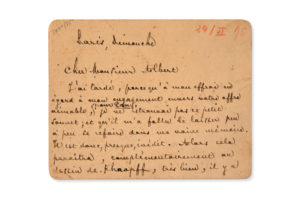 Paris, Dimanche
Cher Monsieur Albert
J'ai tardé, parce qu'à mon effroi en
égard à mon engagement envers votre offre
aimable, je ne retrouvai pas ce petit
sonnet, et qu'il m'a fallu le laisser peu
à peu se refaire dans ma vaine mémoire.
Il est donc, presque, inédit. Alors cela
paraîtra, complémentairement au
dessin de Khnopff, très bien, il y a